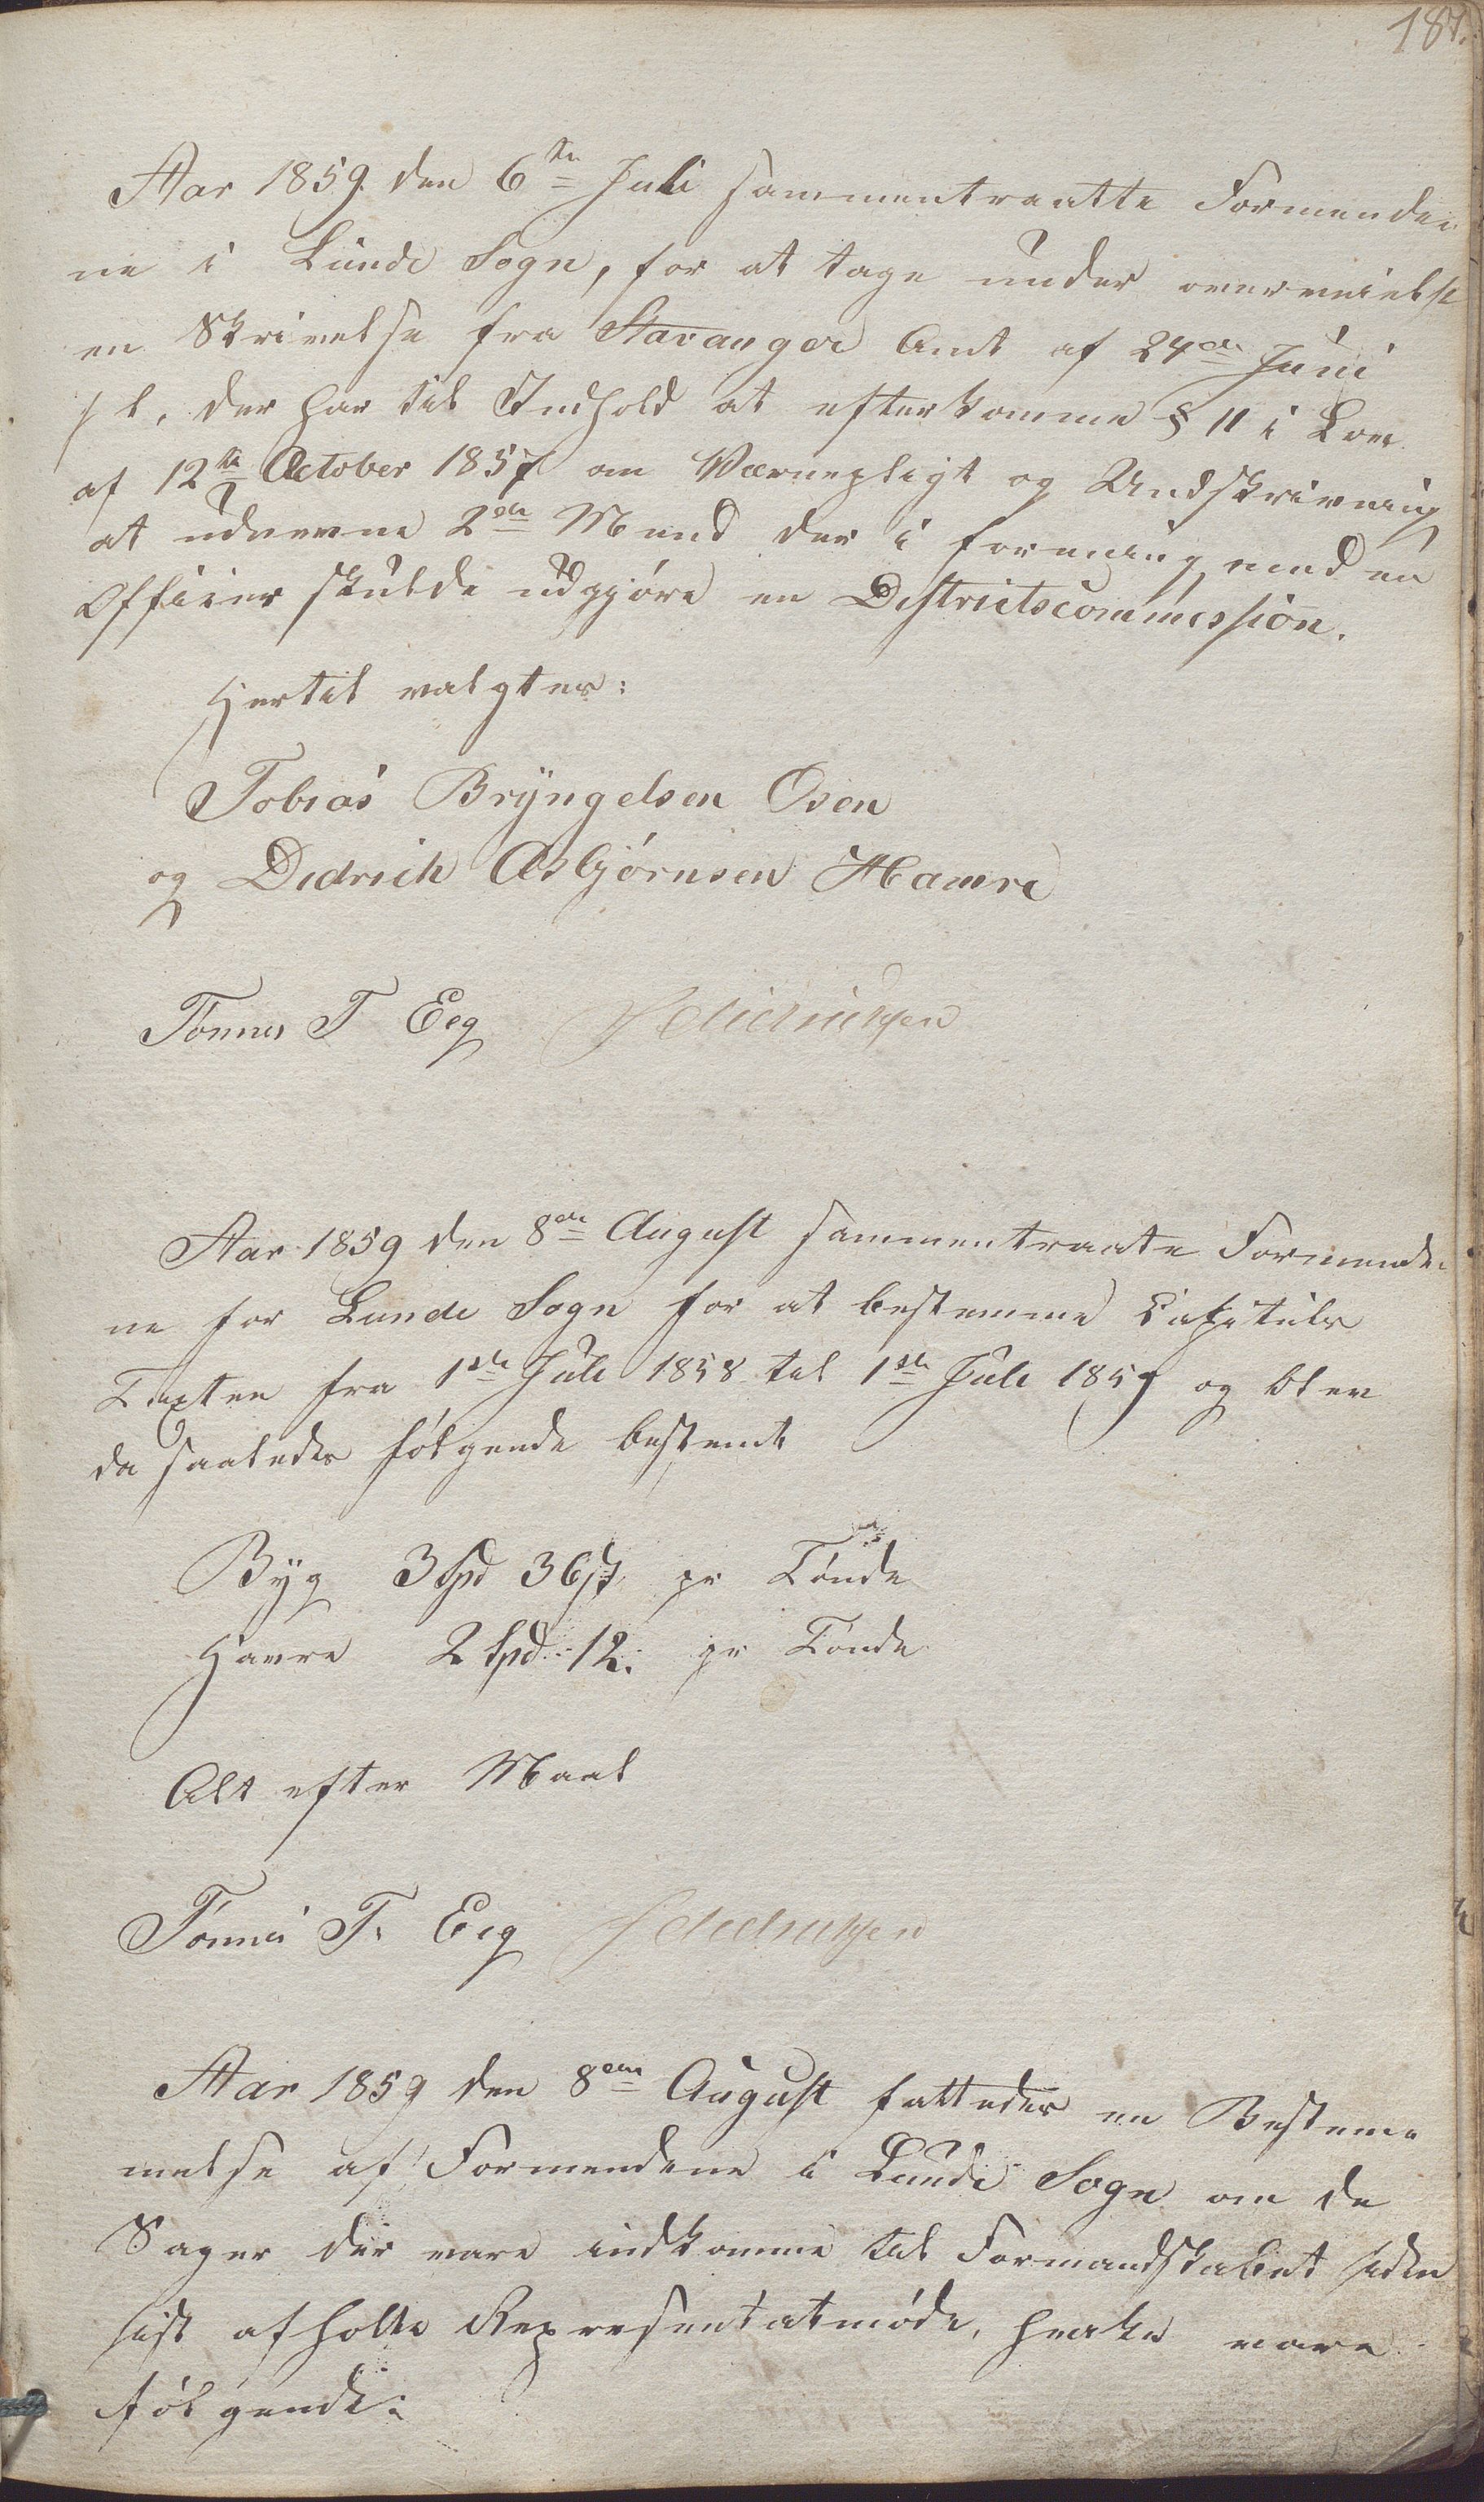 187.
Aar 1859. den 6te Juli sammentraatte Formænde-
ne i Lunde Sogn, for at tage under overveielse
en Skrivelse fra Stavanger Amt af 24de Juni
s l, der har til Indhold at efterkomme § 11 i Lov
af 12te October 1857 om Værnepligt og Udskrivning
at udnevne 2de Mænd der i forening med en
Officier skulde udgjøre en Districtscommission.
Hertil valgtes:
Tobias Bryngelsen Osen
og Didrich Asbjørnsen Hamre
Tønnes T Eeg
Aar 1859 den 8de August sammentraate Formænde-
ne for Lunde Sogn for at bestemme Capitels
Taxten fra 1ste Juli 1858 til 1ste Juli 1859 og blev
da saaledes følgende bestemt
Byg 3 Spd 36 s pr Tønde
Havre 2 Spd 12. pr Tønde
Alt efter Maal
Tønnes T. Eeg
Aar 1859 den 8de August fattedes en Bestem-
melse af Formændene i Lunde Sogn om de
Sager der vare indkomne til Formandskabet siden
sist afholte Representatmøde, hvilke vare
følgende: